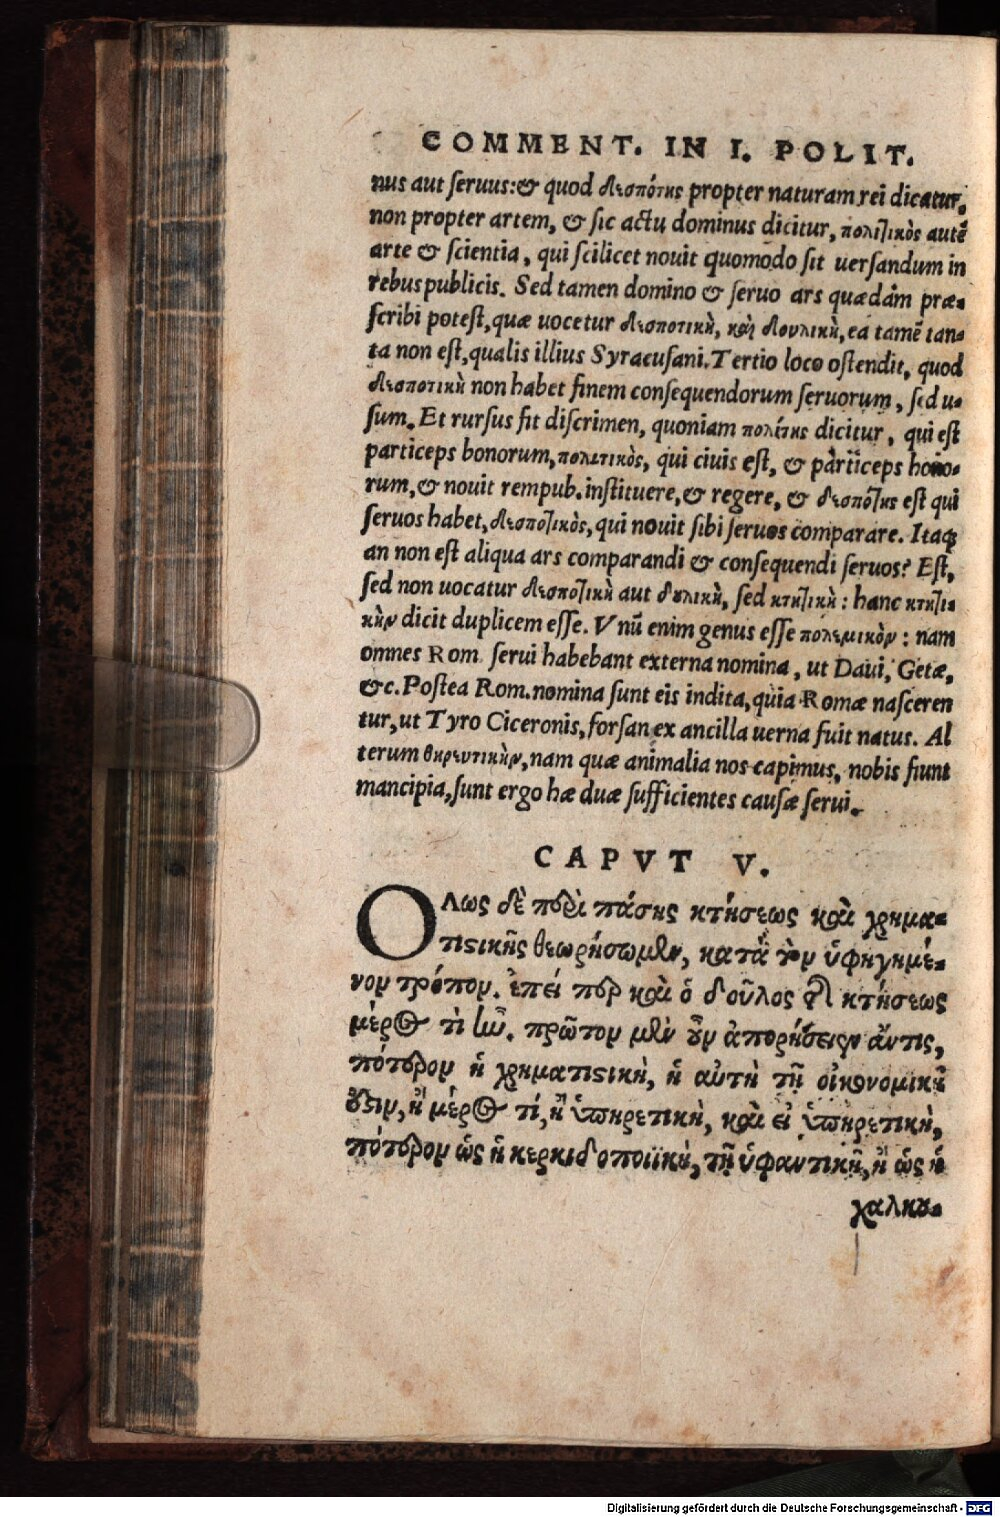 COMMENT. IN I. POLIT.
nus aut ſeruus:& quod δεσπότης propter naturam rei dicatur,
non propter artem, & ſic actu dominus dicitur, πολιτικὸς autē
arte & ſcientia, qui ſcilicet nouit quomodo ſit uerſandum in
rebus publicis. Sed tamen domino & ſeruo ars quædam præ-
ſcribi poteſt, quæ uocetur δεσποτικὴ, καὶ δουλικὴ, ea tamē tan-
ta non eſt, qualis illius Syracuſani. Tertio loco oſtendit, quod
δεσποτικὴ non habet finem conſequendorum ſeruorum, ſed u-
ſum. Et rurſus fit diſcrimen, quoniam πολίτης dicitur, qui eſt
particeps bonorum, πολιτικὸς, qui ciuis eſt, & particeps hono-
rum, & nouit rempub. inſtituere, & regere, & δεσπότης eſt qui
ſeruos habet, δεσποτικὸς, qui nouit ſibi ſeruos comparare. Itaq;
an non eſt aliqua ars comparandi & conſequendi ſeruos? Eſt,
ſed non uocatur δεσποτικὴ aut δουλικὴ, ſed κτητικὴ: hanc κτητι-
κὴν dicit duplicem eſſe. Vnū enim genus eſſe πολεμικὸν: nam
omnes Rom. ſerui habebant externa nomina, ut Daui, Getæ,
&c. Poſtea Rom. nomina ſunt eis indita, quia Romæ naſceren
tur, ut Tyro Ciceronis, forſan ex ancilla uerna fuit natus. Al
terum θηρευτικὴν, nam quæ animalia nos capimus, nobis fiunt
mancipia, ſunt ergo hæ duæ ſufficientes cauſæ ſerui.
CAPVT V.
Ολως δὲ περὶ πάσης κτήσεως καὶ χρημα-
τιστικῆς θεωρήσωμεν, κατὰ τὸν ὑφηγημέ-
νον τρόπον. ἐπεί περ καὶ ὁ δοῦλος τῆς κτήσεως
μέρος τὶ ἦν. πρῶτον μὲν οὖν ἀπορήσειεν ἄν τις,
πότερον ἡ χρηματιστικὴ, ἡ αὐτὴ τῇ οἰκονομικῇ
ὅστιν, ἢ μέρος τί, ἢ ὑπηρετικὴ, καὶ εἰ ὑπηρετικὴ,
πότερον ὡς ἡ κερκιδοποιϊκὴ, τῇ ὑφαντικῇ, ἢ ὡς ἡ
χαλκου-
Digitalisierung gefördert durch die Deutsche Forschungsgemeinschaft - DFG